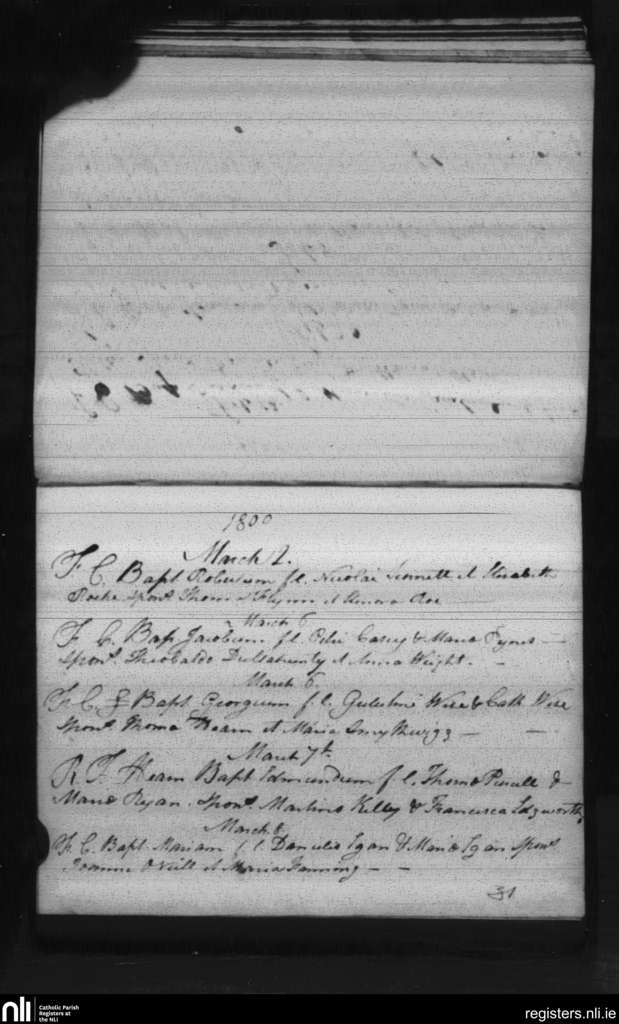 1800
March 2.
F. C. Bapt Robertum f. l. Nicolai Sinnett et Elizabeth
Roche spons Thoma Flynn et Honora Roe
March 6
F. C. Bap. Jacobum f l. Petri Casey & Maria Pyne
Spons. Theobaldo et Anna Wright.
March 6
F. C. Bapt. Georgium f. l. Gulielmi Wise & Cath Wise
Spons. Thoma Hearn et Maria Smyth
March 7th
R. F. Hearn Bapt Edmundum f. l. Thoma Purcell &
Maria Ryan. Spons. Martino Kelly & Francisca Edgworth
March 8
F. C. Bapt. Mariam f l Danielis Egan & Maria Egan Spons
Joanne O Neill et Maria Fanning
31
nli
Catholic Parish
Registers at
the NLI
registers.nli.ie